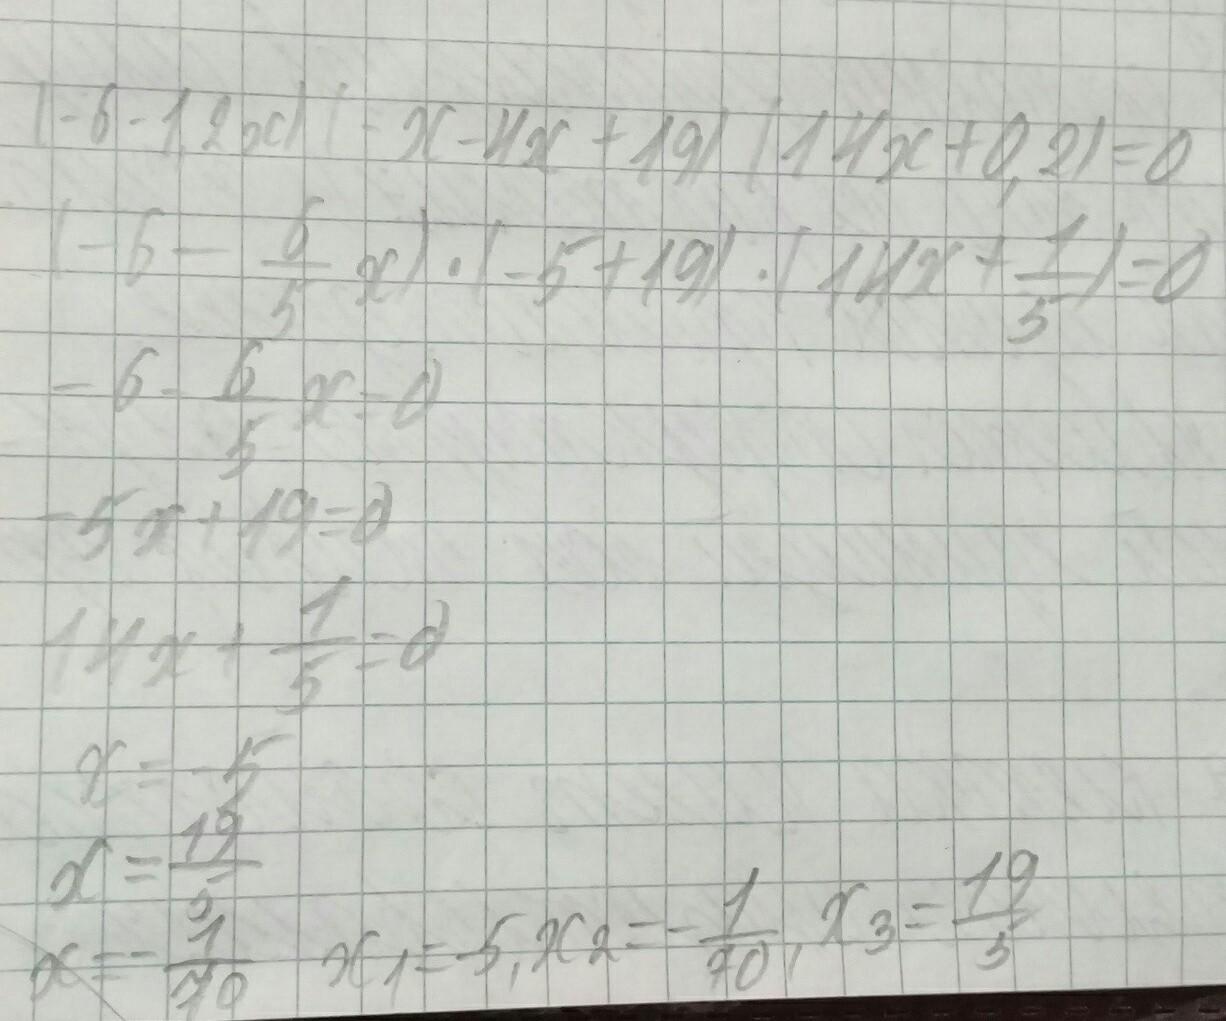 (-6-1,2x)(-x-4x+19)(14x+0,2)=0
(-6-6/5x)·(-5+19)·(14x+1/5)=0
-6-6/5x=0
-5x+19=0
14x+1/5=0
x=-5
x=19/5
x=-1/70 x₁=-5, x₂=-1/70, x₃=19/5